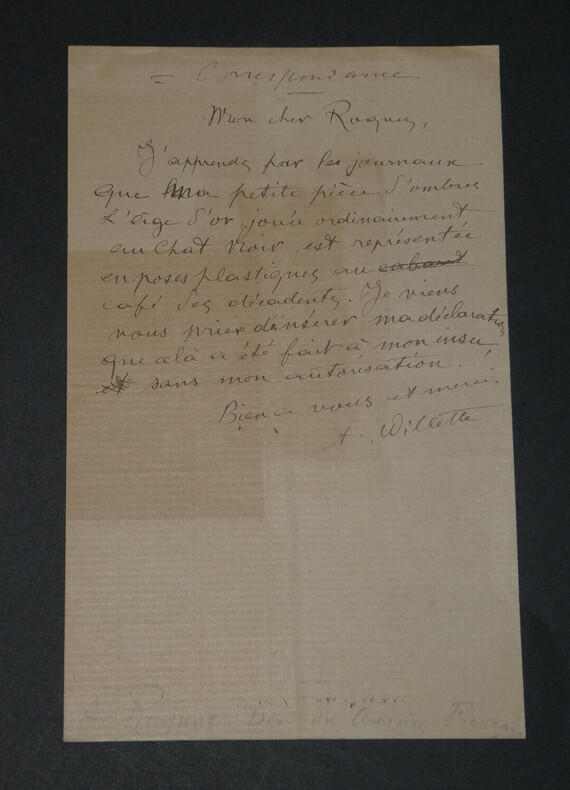 = Correspondance
Mon cher Roques,
J'apprends par les journaux
que ma petite pièce d'ombres
L'âge d'or, jouée ordinairement
au Chat Noir est représentée
en poses plastiques au cabaret
café des décadents. Je viens
vous prier d'insérer ma déclaration
que celà a été fait à mon insu
et sans mon autorisation.
Bien à vous et merci.
A. Willette
A Roques Dir. du Courrier Français